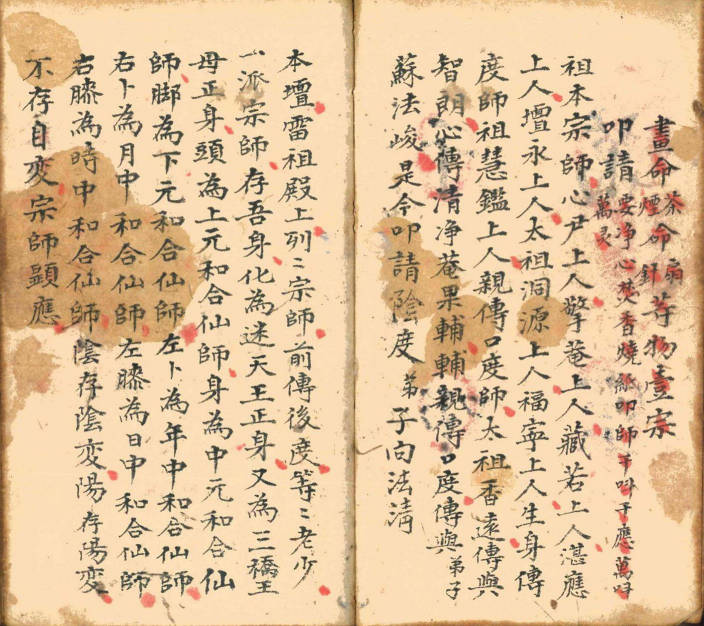 畫命茶煙命扇針等物壹宗
叩請要净心焚香燒紙叩師千呌千應萬呌萬灵
祖本宗師心尹上人擎菴上人藏若上人湛應
上人壇永上人太祖洞源上人福寧上人生身傳
度師祖慧鑑上人親傳口度師太祖香遠傳與
智朗心傳清净菴果輔輔親傳口度傳與弟子
蘇法峻是今叩請陰度弟子向法清
本壇雷祖殿上列二宗師前傳後度等二老少
一派宗師存吾身化為迷天王正身又為三橋王
母正身頭為上元和合仙師身為中元和合仙
師脚為下元和合仙師左卜為年中和合仙師
右卜為月中和合仙師左膝為日中和合仙師
右膝為時中和合仙師陰存陰变陽存陽变
不存自变宗師顯應